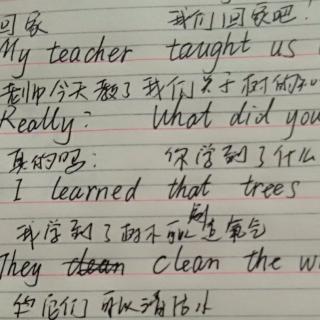 回家 我们回家吧!
My teacher taught us
老师今天教了我们关于树的知
Really? What did you
真的吗? 你学到了什么
I learned that trees
我学到了树木可以制造氧气
They clean the w
它们可以清洁水